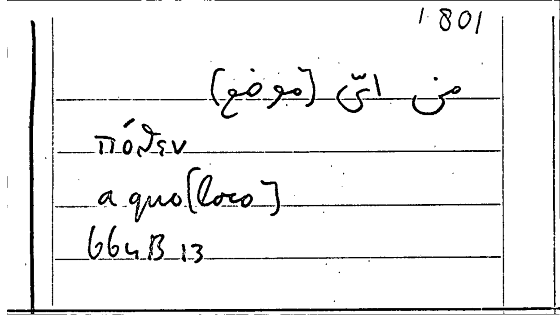 1801
من اىّ (موضع)
πόθεν
a quo [loco]
664B 13